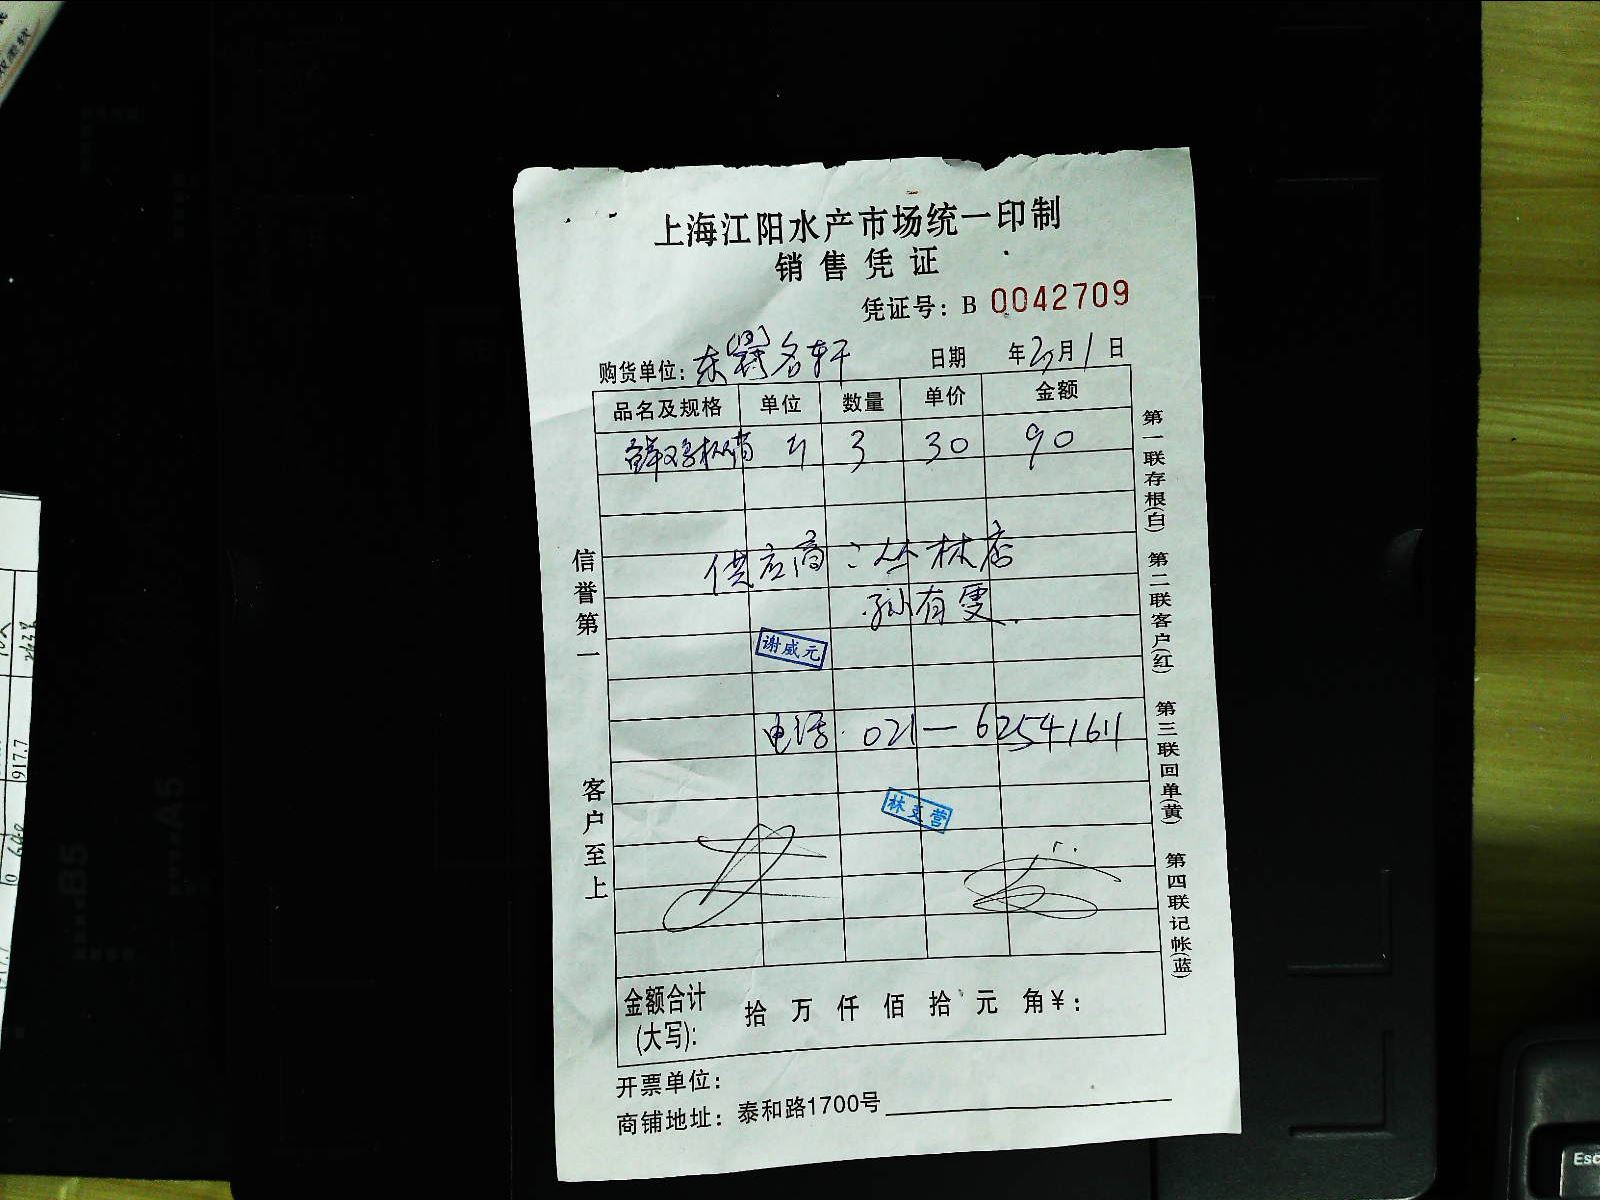 上海江阳水产市场统一印制
销售凭证
凭证号：B 0042709
购货单位：东 名轩 日期 年 月1日
品名及规格 单位 数量 单价 金额
鲜鸡 斤 3 30 90
供应商：丛林店
孙有雯
谢威元
电话 021-62541611
林 营
金额合计(大写)： 拾 万 仟 佰 拾 元 角￥：
开票单位：
商铺地址：泰和路1700号
信誉第一
客户至上
第一联存根(白) 第二联客户(红) 第三联回单(黄) 第四联记帐(蓝)
917.7
B5
A5
Esc